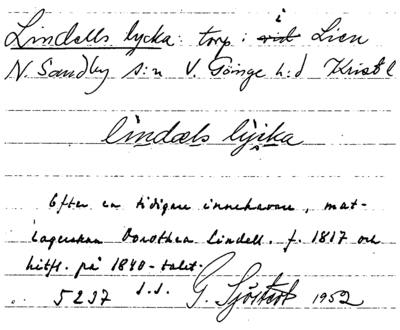 Lindells lycka: torp: i Lien
N. Sandby s:n V. Göinge h:d Kristl
lindæls lyka
Efter en tidigare innehavare, mat-
lagerskan Dorothea Lindell, f. 1817 och
hitfl. på 1840-talet.
5237 s.s. G. Sjöstedt 1952